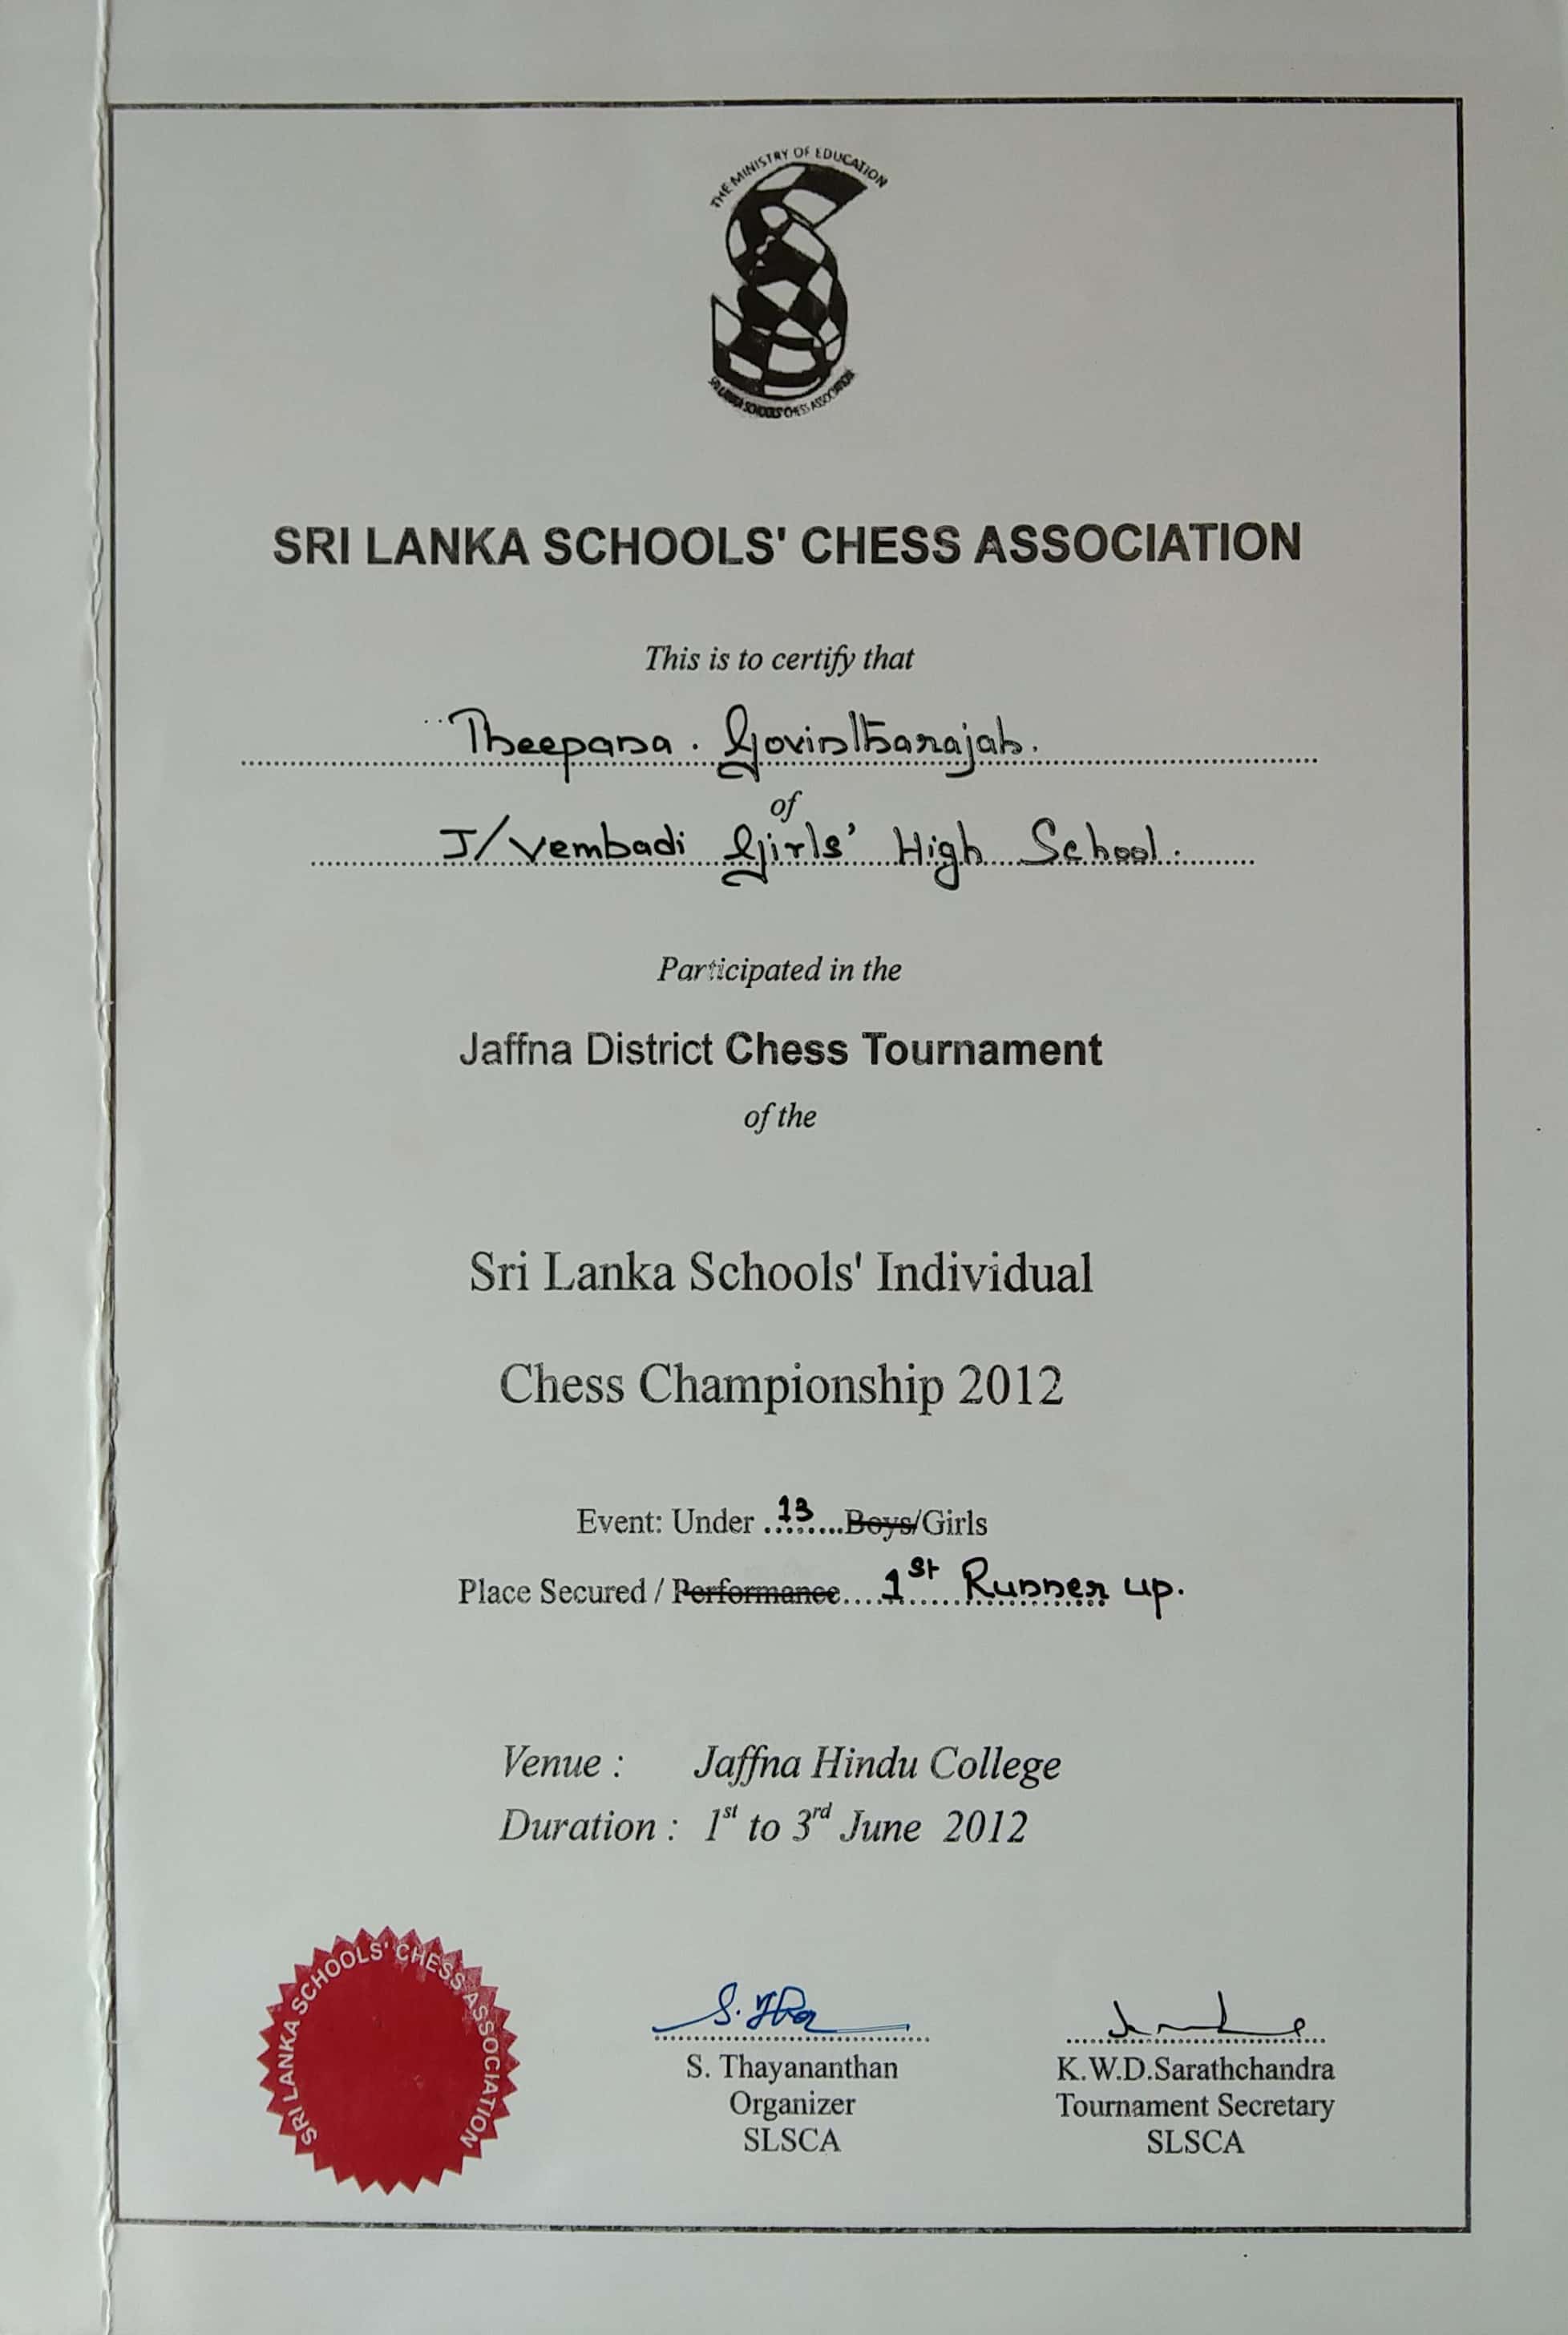 THE MINISTRY OF EDUCATION
SRI LANKA SCHOOLS' CHESS ASSOCIATION
SRI LANKA SCHOOLS' CHESS ASSOCIATION
This is to certify that
Theepana. Govintharajah.
of
J/Vembadi Girls' High School.
Participated in the
Jaffna District Chess Tournament
of the
Sri Lanka Schools' Individual
Chess Championship 2012
Event: Under 13 Boys/Girls
Place Secured / Performance 1st Runner up.
Venue : Jaffna Hindu College
Duration : 1st to 3rd June 2012
SRI LANKA SCHOOLS' CHESS ASSOCIATION
S. Thayananthan
Organizer
SLSCA
K.W.D.Sarathchandra
Tournament Secretary
SLSCA